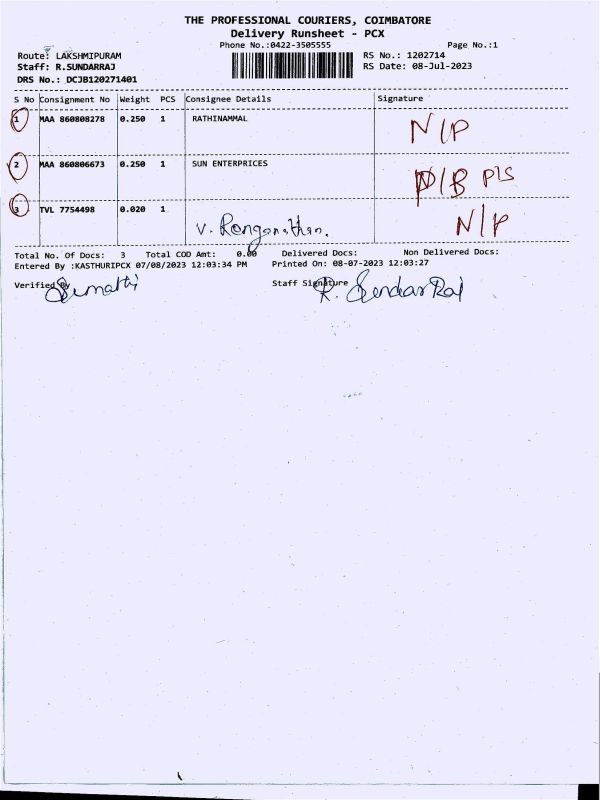 THE PROFESSIONAL COURIERS, COIMBATORE
Delivery Runsheet - PCX
Phone No.:0422-3505555 Page No.:1
Route: LAKSHMIPURAM RS No.: 1202714
Staff: R.SUNDARRAJ RS Date: 08-Jul-2023
DRS No.: DCJB120271401
S No Consignment No Weight PCS Consignee Details Signature
1 MAA 860808278 0.250 1 RATHINAMMAL N/P
2 MAA 860806673 0.250 1 SUN ENTERPRICES D/B P/S
3 TVL 7754498 0.020 1 V. Ranganathan. N/P
Total No. Of Docs: 3 Total COD Amt: 0.00 Delivered Docs: Non Delivered Docs:
Entered By :KASTHURIPCX 07/08/2023 12:03:34 PM Printed On: 08-07-2023 12:03:27
Verified By Sumathi Staff Signature R. Sundar Raj